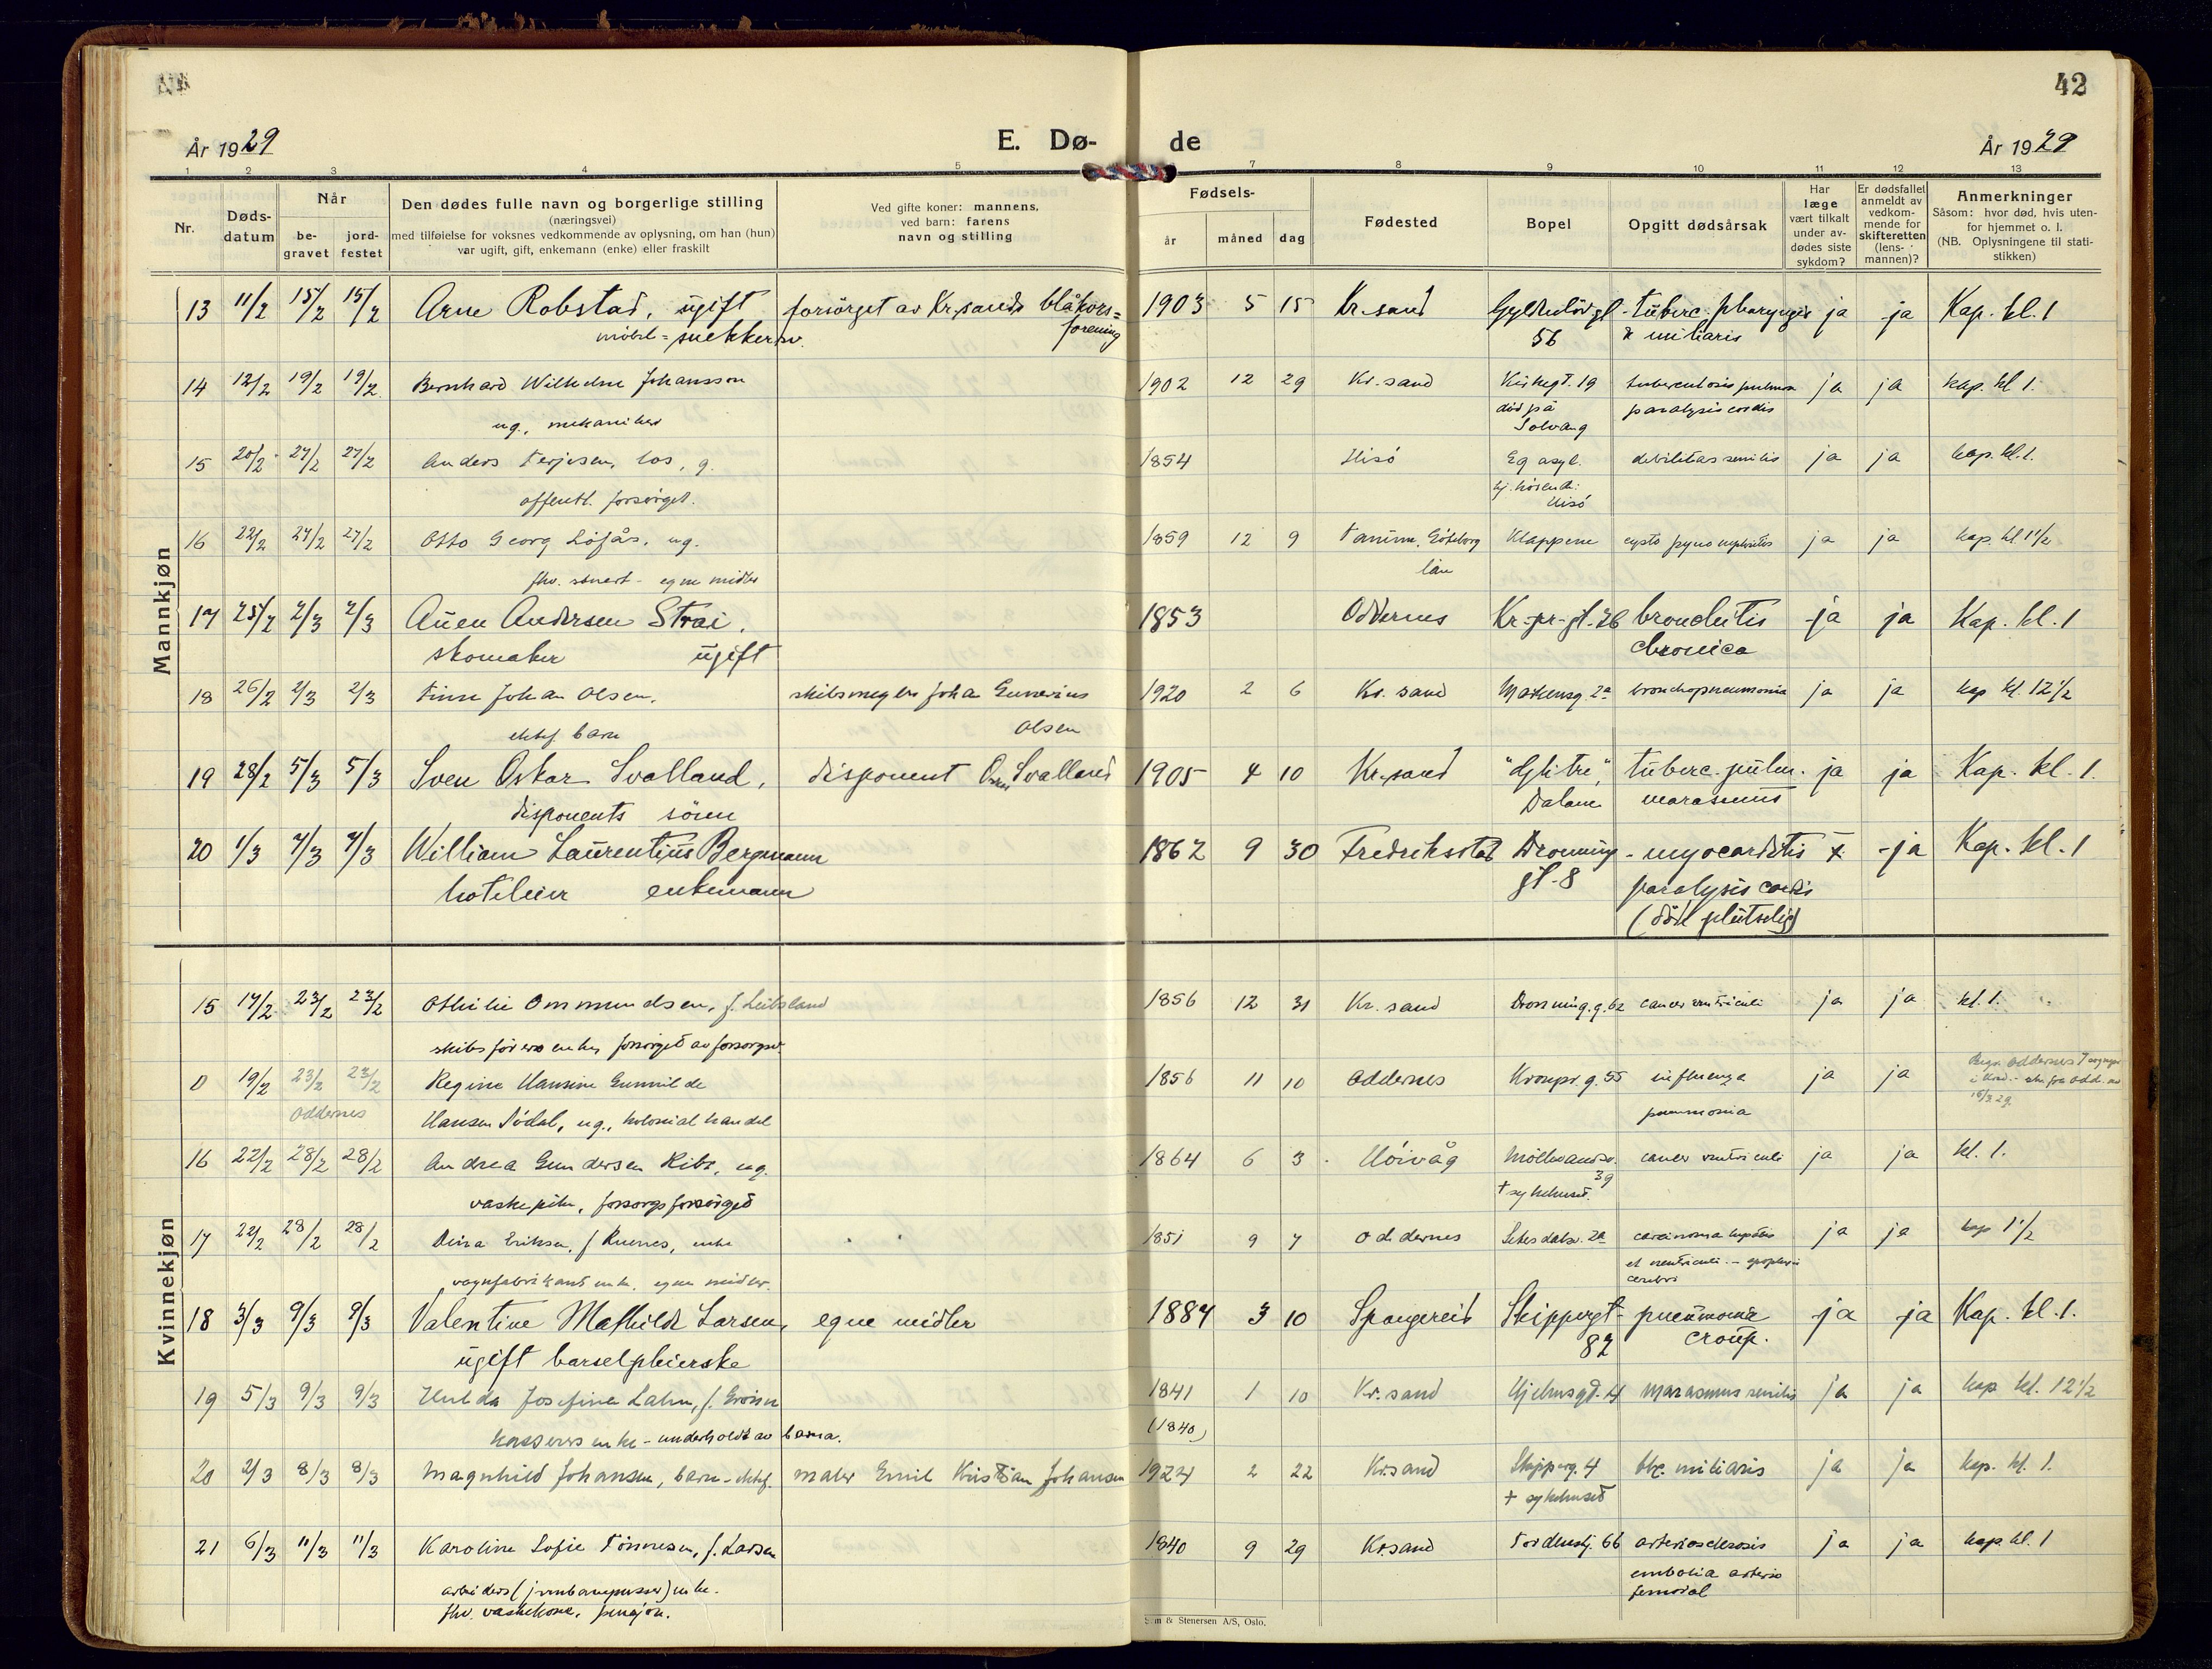 42
År 1929
E. Dø-
de
År 1929
1 2 3 4 5 7 8 9 10 11 12 13
Nr.
Døds-
datum
Når
be-
gravet
jord-
festet
Den dødes fulle navn og borgerlige stilling
(næringsvei)
med tilføielse for voksnes vedkommende av oplysning, om han (hun)
var ugift, gift, enkemann (enke) eller fraskilt
Ved gifte koner: mannens,
ved barn: farens
navn og stilling
Fødsels-
år måned dag
Fødested
Bopel
Opgitt dødsårsak
Har
læge
vært tilkalt
under av-
dødes siste
sykdom?
Er dødsfallet
anmeldt av
vedkom-
mende for
skifteretten
(lens-
mannen)?
Anmerkninger
Såsom: hvor død, hvis uten-
for hjemmet o. l.
(NB. Oplysningene til stati-
stikken)
Mannkjøn
13 11/2 15/2 15/2 Arne Robstad, ugift forsørget av Kr.sands blåkors= 1903 5 15 Kr.sand Gyldenløv.gt - tuberc. pharyngis ja ja Kap. kl. 1
møbel=snekkersv. forening 56 & miliaris
14 12/2 19/2 19/2 Bernhard Wilhelm Johansson 1902 12 29 Kr. sand Kirkegt. 19 tuberculosis pulmon ja ja kap. kl 1.
ug., mekaniker død på paralysis cordis
Solvang
15 20/2 27/2 27/2 Anders Terjesen, los, g. 1854 Hisö Eg asyl. debilitas senilis ja ja kap. kl. 1.
offentl. forsørget. hj. hörende:
Hisö
16 22/2 27/2 27/2 Otto Georg Löfås, ug. 1859 12 9 Tanum, Göteborg Klappene cysto pyno nephritis ja ja kap. kl 1 1/2
fhv. stuert - egne midler län
17 25/2 2/3 2/3 Auen Andersen Strai, 1853 Oddernes Kr.-pr-gt. 26 bronchitis ja ja Kap. kl. 1
skomaker ugift chronica
18 26/2 2/3 2/3 Finn Johan Olsen, skibsmegler Johan Gunerius 1920 2 6 Kr. sand Markensg. 2a bronchopneumonia ja ja kap kl. 12 1/2
ektef. barn Olsen
19 28/2 5/3 5/3 Sven Oskar Svalland, disponent Osw. Svalland 1905 4 10 Kr.sand "Glitre", tuberc. pulm. ja ja Kap. kl. 1.
disponents sönn Dalane marasmus
20 1/3 7/3 7/3 William Laurentius Bergmann 1862 9 30 Fredriksstad Dronning - myocarditis x ja Kap. kl. 1
hoteleier enkemann gt. 8 paralysis cordis
(död plutselig)
Kvinnekjøn
15 17/2 23/2 23/2 Othilie Ommundsen, f. Leibsland 1856 12 31 Kr. sand Dronning.g. 62 cancer ventriculi ja ja kl. 1.
skibsförers enke, forsörget av forsorgsv.
0 19/2 23/2 23/2 Regine Hansine Gunnilde 1856 11 10 Oddernes Kronpr.g. 55 influenza ja ja
Oddernes Hansen Södal, ug., kolonialhandel pneumonia
16 22/2 28/2 28/2 Andrea Gundersen Ribe, ug. 1864 6 3 Höivåg Möllevandsv. cancer ventriculi ja ja kl. 1.
vaskepike, forsorgsforsörget 39
† sykehuset.
17 22/2 28/2 28/2 Dina Eriksen, f Kuenes, enke 1851 9 7 Oddernes Setesdalsv. 2a carcinoma hepatis ja ja kap 1 1/2
vognfabrikant enke, egne midler. et ventriculi - apoplexi
cerebri
18 3/3 9/3 9/3 Valentine Mathilde Larsen, egne midler 1884 3 10 Spangereid Skippergt - pneumonia ja ja Kap. kl. 1.
ugift barselpleierske 82 croup.
19 5/3 9/3 9/3 Hulda Josefine Lahn, f. Grönn 1841 1 10 Kr. sand Hjelmsgd. 4 marasmus senilis ja ja kap kl. 12 1/2
kasserers enke - underholdt av barna. (1840)
20 2/3 8/3 8/3 Magnhild Johansen, barn - ektef. maler Emil Kristian Johansen 1924 2 22 Kr.sand Skipperg. 4 tbc. miliaris ja ja kap. kl. 1.
† sykehuset
21 6/3 11/3 11/3 Karoline Sofie Tönnesen, f. Larsen 1840 9 29 Kr.sand Tordenskj. 66 arteriosclerosis ja ja kap. kl. 1
arbeiders (jernbanepusser) enke. embolia arterio
fhv. vaskekone, pensjon. femoral
& Stenersen A/S, Oslo.